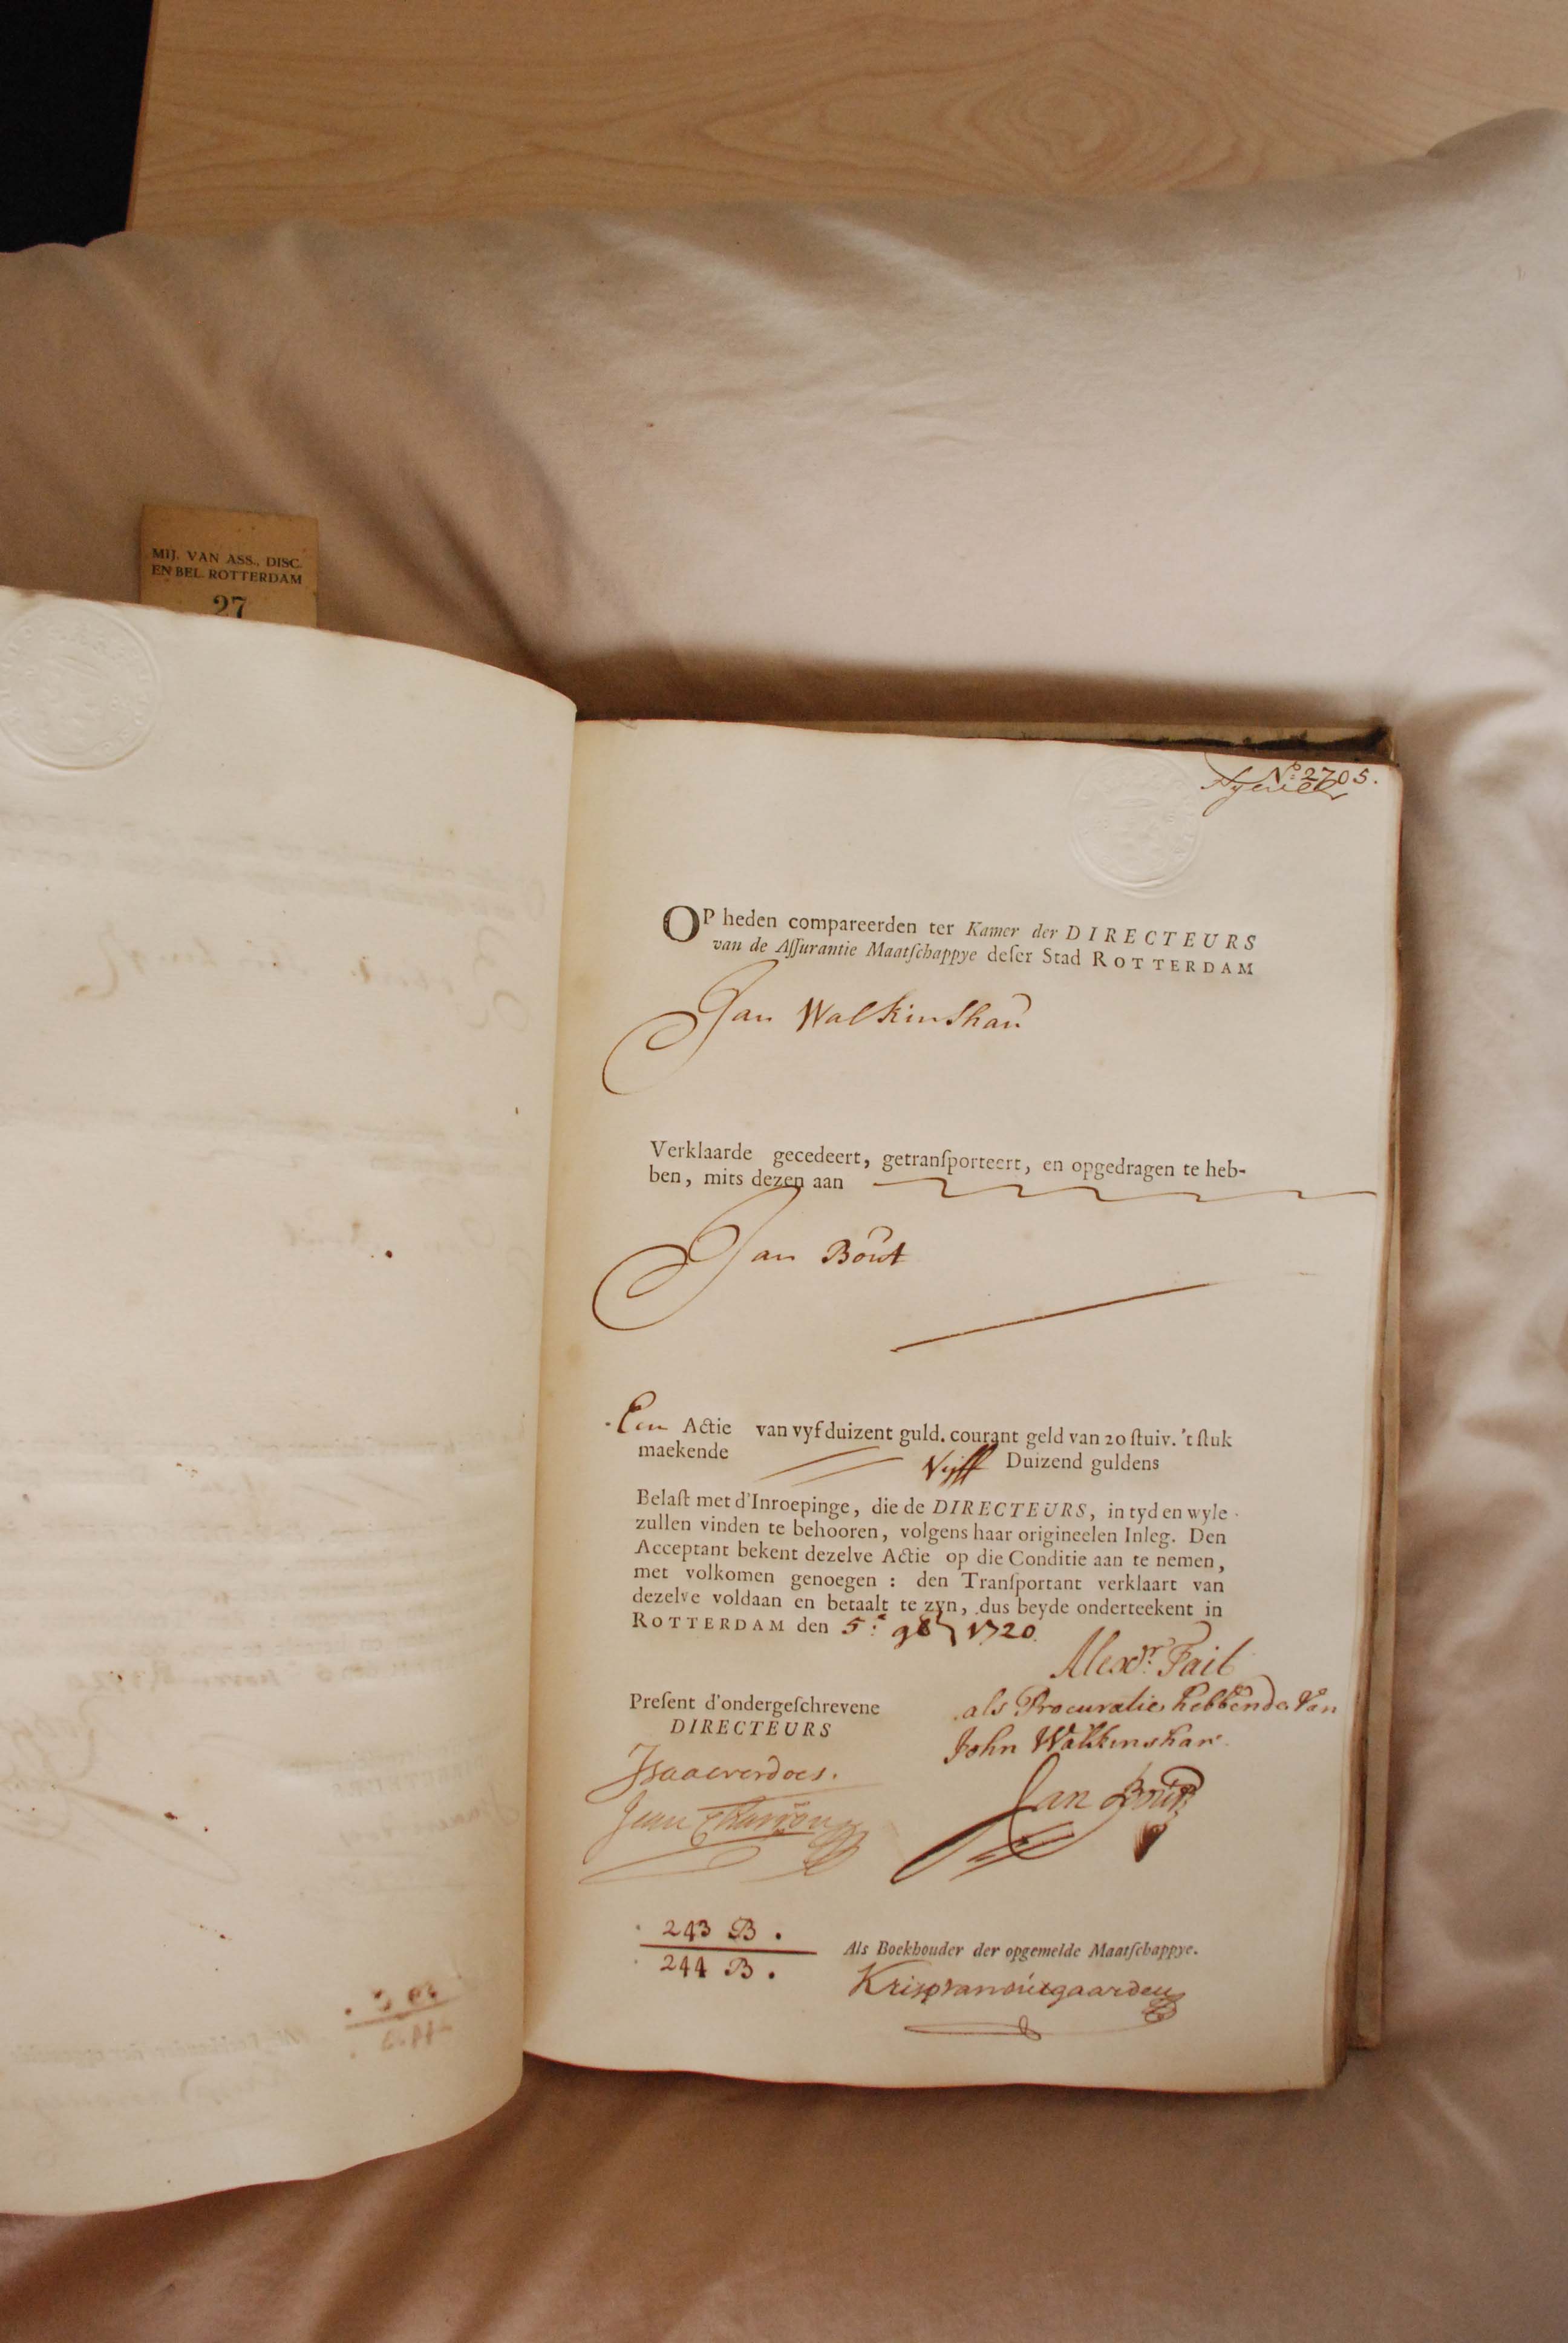 MIJ. VAN ASS., DISC.
EN BEL. ROTTERDAM
27
No: 2705.
OP heden compareerden ter Kamer der DIRECTEURS
van de Aſſurantie Maatſchappye deſer Stad ROTTERDAM
Jan Walkinshau
Verklaarde gecedeert, getranſporteert, en opgedragen te heb-
ben, mits dezen aan
Jan Bout
Een Actie van vyf duizent guld. courant geld van 20 ſtuiv. 't ſtuk
maekende Vijff Duizend guldens
Belaſt met d'Inroepinge, die de DIRECTEURS, in tyd en wyle
zullen vinden te behooren, volgens haar origineelen Inleg. Den
Acceptant bekent dezelve Actie op die Conditie aan te nemen,
met volkomen genoegen : den Tranſportant verklaart van
dezelve voldaan en betaalt te zyn, dus beyde onderteekent in
ROTTERDAM den 5: 9br 1720
Alexr. Fail
als Procuratie hebbende Van
John Walkinshaw
Jan Bout
Preſent d'ondergeſchrevene
DIRECTEURS
Isaac verdoes.
Jean Charron
243 B.
244 B.
Als Boekhouder der opgemelde Maatſchappye.
Kris van outgaarden